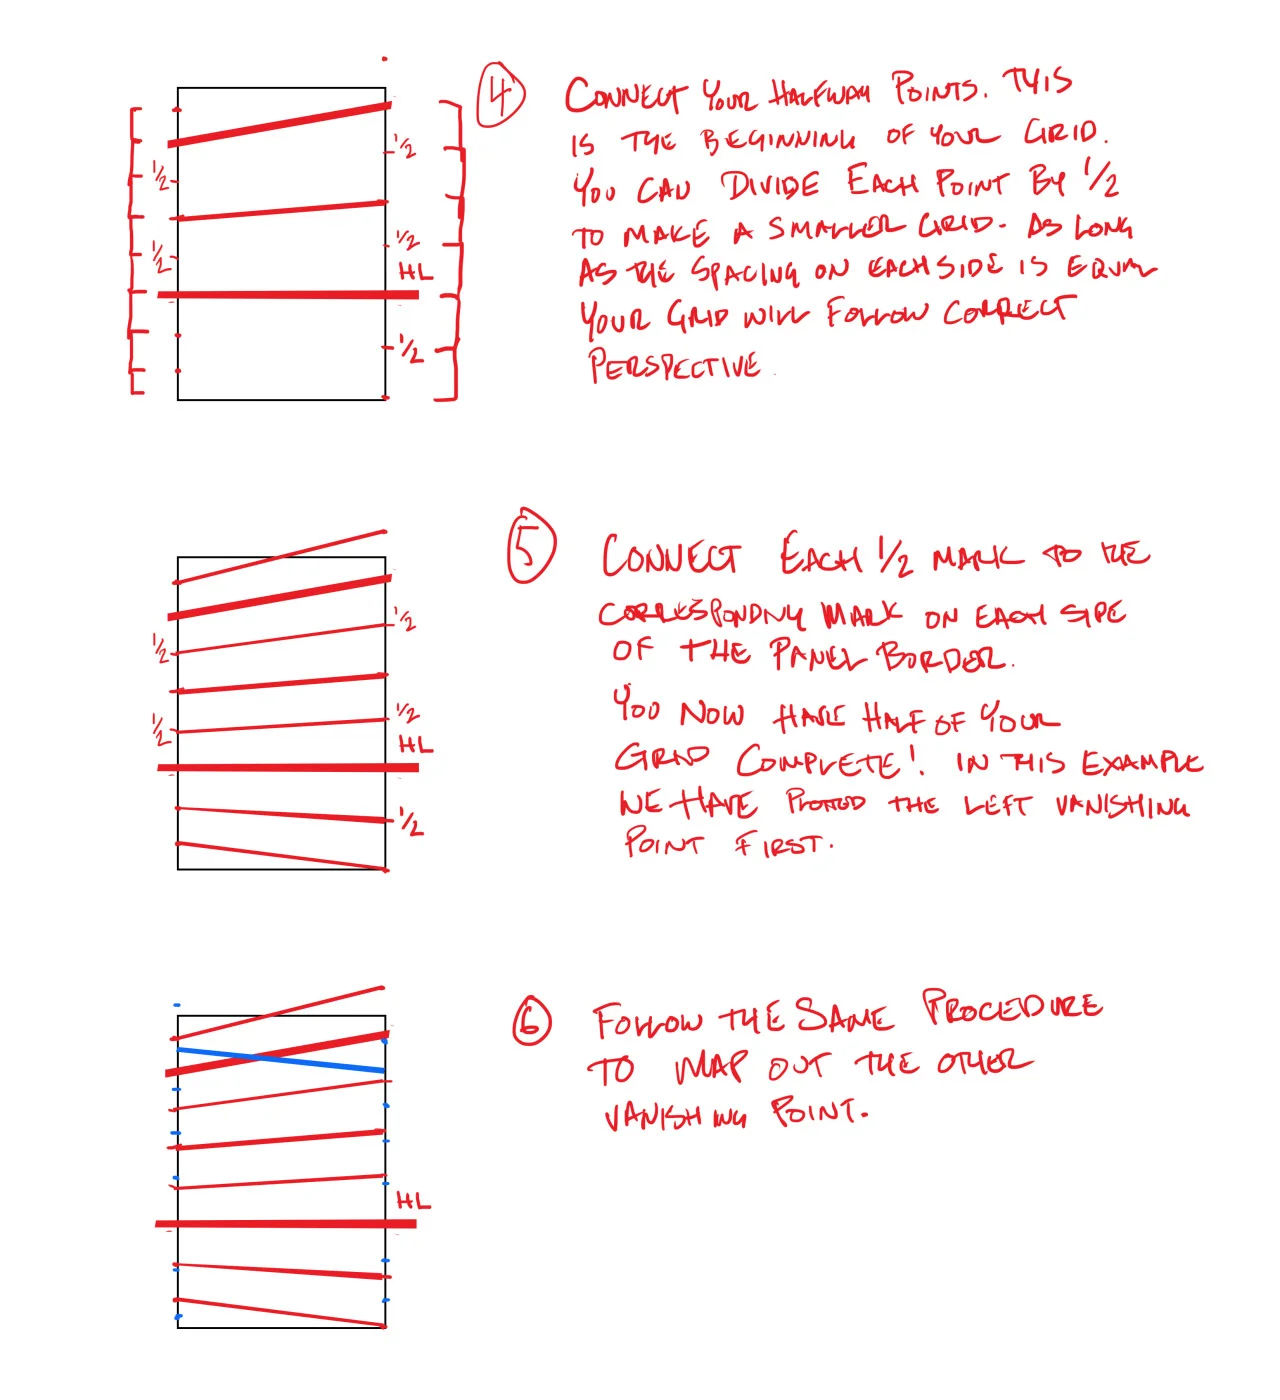 4
CONNECT YOUR HALFWAY POINTS. THIS
IS THE BEGINNING OF YOUR GRID.
YOU CAN DIVIDE EACH POINT BY 1/2
TO MAKE A SMALLER GRID. AS LONG
AS THE SPACING ON EACH SIDE IS EQUAL
YOUR GRID WILL FOLLOW CORRECT
PERSPECTIVE.
1/2
1/2
1/2
1/2
HL
1/2
5
CONNECT EACH 1/2 MARK TO THE
CORRESPONDNG MARK ON EACH SIDE
OF THE PANEL BORDER.
YOU NOW HAVE HALF OF YOUR
GRID COMPLETE! IN THIS EXAMPLE
WE HAVE PLOTTED THE LEFT VANISHING
POINT FIRST.
1/2
1/2
1/2
1/2
HL
1/2
6
FOLLOW THE SAME PROCEDURE
TO MAP OUT THE OTHER
VANISHING POINT.
HL